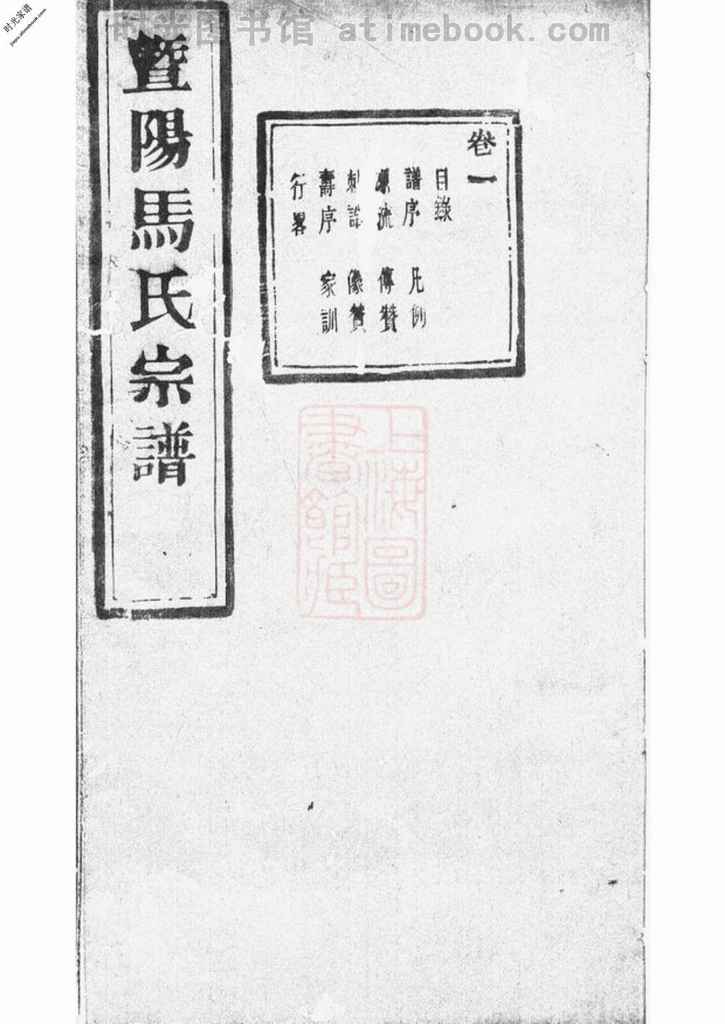 时光图书馆 atimebook.com
时光家谱
jiapu.atimebook.com
暨陽馬氏宗譜
卷一
目錄
譜序 凡例
源流 傳贊
制誥 像贊
壽序 家訓
行畧
上海圖
書館藏